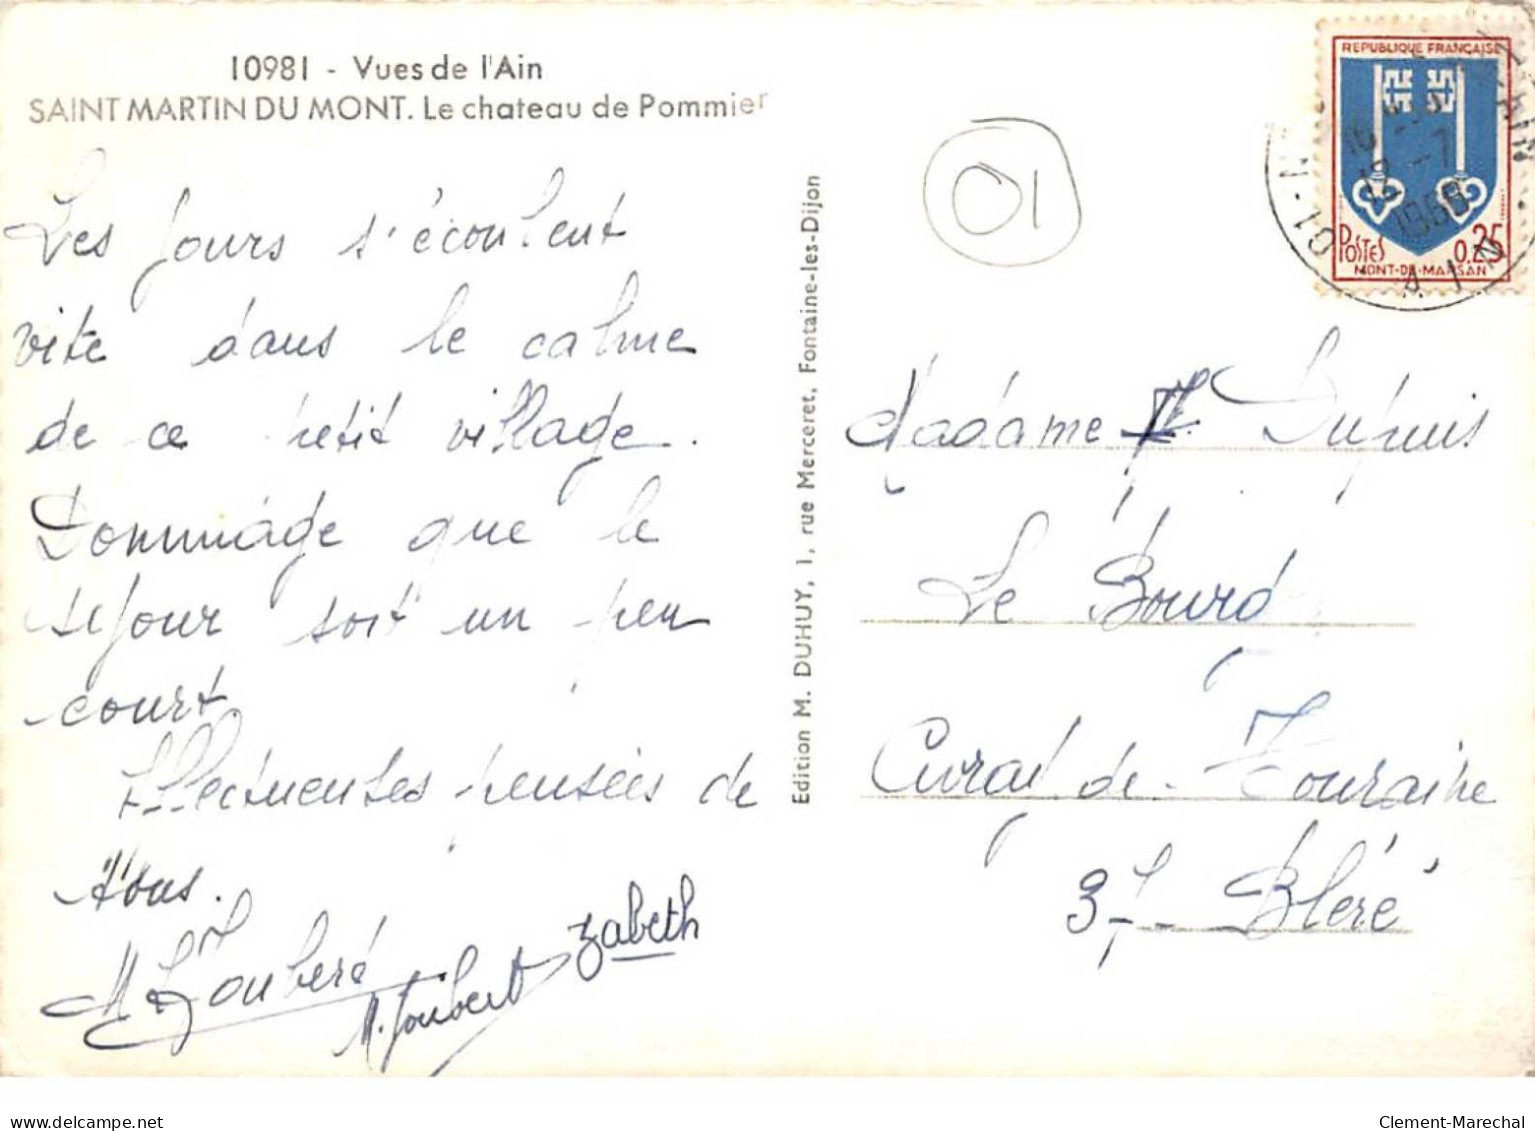 10981 - Vues de l'Ain
SAINT MARTIN DU MONT. Le chateau de Pommier
Les jours s'écoulent
vite dans le calme
de ce petit village.
Dommage que le
séjour soit un peu
court
Affectueuses pensées de
tous.
M. Joubert
Zabeth
Edition M. DUHUY, 1, rue Merceret, Fontaine-les-Dijon
01
REPUBLIQUE FRANÇAISE
POSTES 0.25
MONT-DE-MARSAN
12 -7
1968
01 AIN
Madame Dupuis
Le Bourd
Civray de Touraine
37 - Bléré
Clement-Marechal